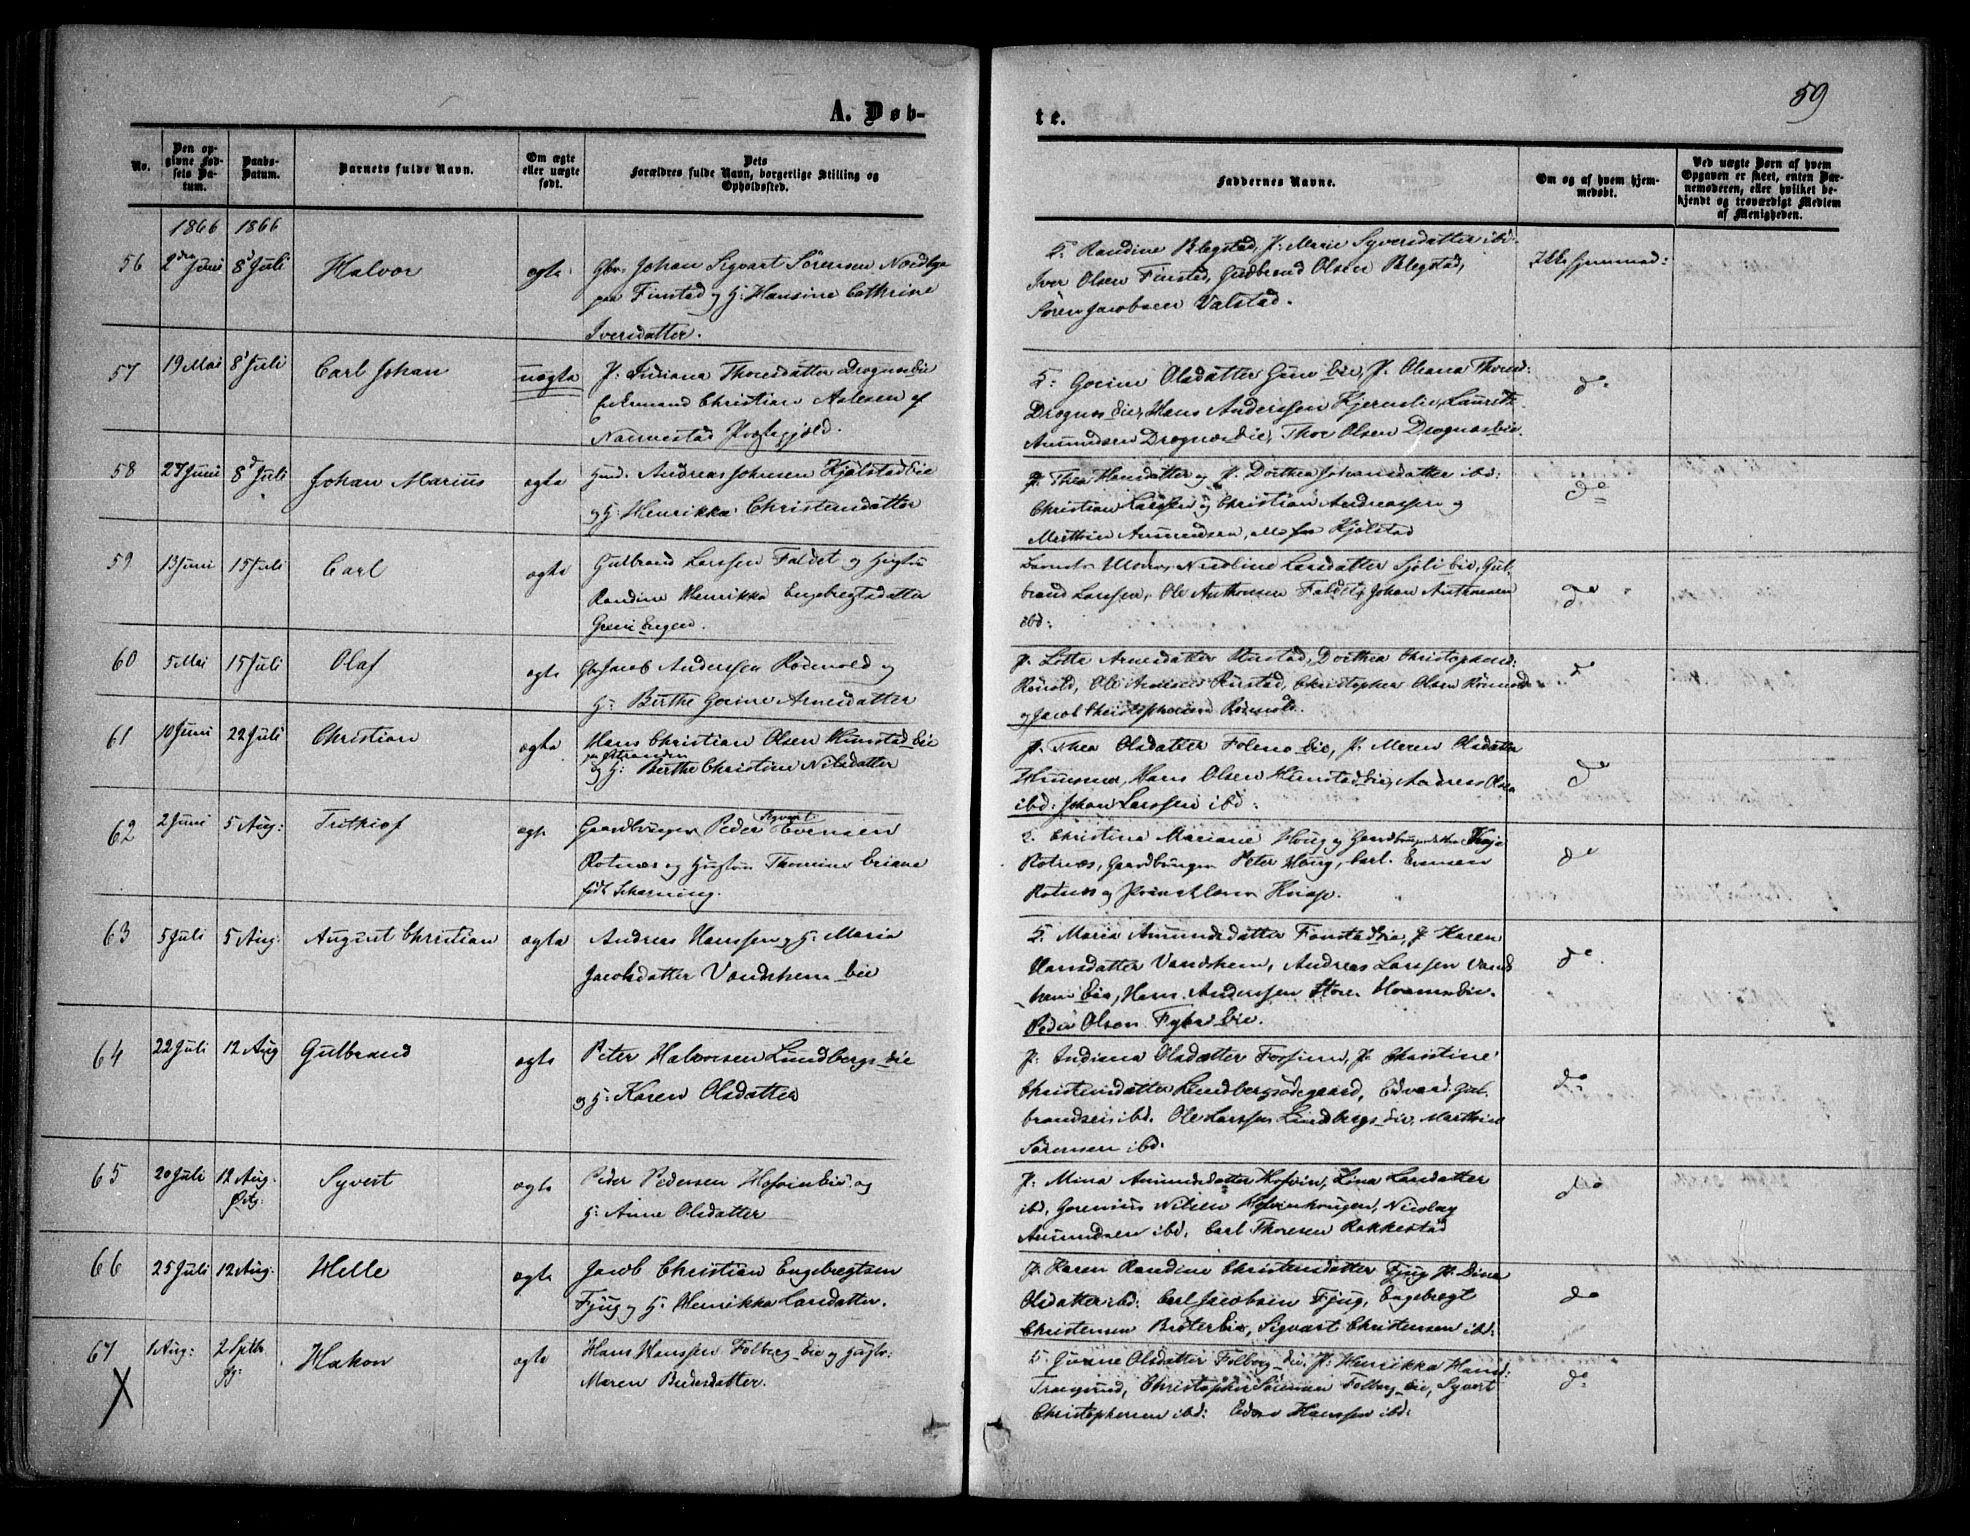 59
A. Døb-
te.
No.
Den op-
givne Fød-
sels Da-
tum.
Daabs-
Datum.
Barnets fulde Navn.
Om ægte
eller uægte
født.
Dets
Forældres fulde Navn, borgerlige Stilling og
Opholdssted.
Faddernes Navne.
Om og af hvem hjem-
medøbt.
Ved uægte Børn af hvem
Opgaven er skeet, enten Bar-
nemoderen, eller hvilket be-
kjendt og troværdigt Medlem
af Menigheden.
1866 1866
56 2den Juni 8d Juli Halvor ægte Gbr. Johan Sigvart Sörensen Nordbye
paa Finstad og H: Hansine Cathrine
Iversdatter.
Randine Blegstad, P: Marie Syversdatter ibi.
Iver Olsen Finstad, Gudbrand Olsen Blegstad,
Sören Jacobsen Valstad.
Ikke hjemmed:
57 19 Mai 8d Juli Carl Johan uægte P. Indiana Thoresdatter Drognæseie
Christian Aslesen af
Nannestad Præstegjeld.
Gorine Olsdatter eie, P. Oleana Thoresd:
Drognæseie, Hans Anderssen Kjerneslie, Laurits
Amundsen Drognæseie, Thor Olsen Drognæseie.
do
58 27 Juni 8d Juli Johan Marius ægte Huusmd. Andreas Johnsen Kjølstadeie
og H: Henrikka Christensdatter
P. Thea Hansdatter og P. Dorthea Johansdatter ibd:
Christian Larssen og Christian Andreassen og
Marthin Amundsen, alle fra Kjølstad
do
59 13 Juni 15 Juli Carl ægte Gulbrand Larssen Faldet og Hustru
Randine Henrikka Engebregtsdatter
Grini Engen.
Barnets Moder, Nicoline Larsdatter eie, Gul-
brand Larssen, Ole Anthonsen Faldet, Johan Anthonsen
ibd:
do
60 5 Mai 15 Juli Olaf ægte Gbr Jacob Anderssen Rödenold og
H: Berthe Gorine Arnesdatter
P. Lotte Arnesdatter Rustad, Dorthea Christophersd:
Rönold, Ole Arnesen Rustad, Christopher Olsen Rönnold
og Jacob Christophersen Rönnold.
do
61 10 Juni 22 Juli Christian ægte Hans Christian Olsen Hunstadeie
og H: Berthe Christine Nilsdatter
P. Thea Olsdatter eie, P. Maren Olsdatter
Hans Olsen Hunstadeie, Andreas Olsen
ibd: Johan Larssen ibd:
do
62 2 Juni 5 Aug: Frithiof ægte Gaardbruger Peder Syvert Evensen
Rotnæs og Hustru Thomine Eriane
født Scharning.
Christine Mariane Houg og
Rotnæs, Gaardbruger Peter Houg, Carl Evensen
Rotnæs og
do
63 5 Juli 5 Aug. August Christian ægte Andreas Hanssen og H: Maria
Jacobsdatter Vandshem eie
Maria Amundsdatter Fonstadeie, P. Karen
Hansdatter Vandshem, Andreas Larssen Vands
hem Eie, Hans Anderssen Store
Peder Olsen eie.
do
64 22 Juli 12 Aug Gulbrand ægte Peter Halvorsen Lundbergs eie
og H: Karen Olsdatter
P: Indiana Olsdatter Fossum, P. Christine
Christensdatter Lundbergsødegaard, Edvard Gul-
brandsen ibd. Ole Larssen Lundbergs eie, Marthin
Sørensen ibd:
do
65 20 Juli 12 Aug. Syvert ægte Peder Pedersen Hofvineie og
H: Anne Olsdatter
P: Mina Amundsdatter Hofvin, Lina Larsdatter
ibd, Gorenius Nilsen Hofvinhougen, Nicolay
Amundsen ibd. Carl Thoresen Rakkestad
do
66 25 Juli 12 Aug. Helle ægte Jacob Christian Engebregtsen
Fjug og H. Henrikka Larsdatter.
P. Karen Randine Christensdatter Fjug, P. Dina
Olsdatter ibd: Carl Jacobsen Fjug, Engebregt
Christensen Brötereie, Sigvart Christensen ibd:
do
67 1 Aug: 2 Septb. Hakon ægte Hans Hanssen Folberg eie og
Maren Pedersdatter.
Olsdatter Folberg eie, P. Henrikka Hansd:
Christopher Sörensen Folberg eie, Syvert
Christophersen ibd: Hanssen ibd:
do
X